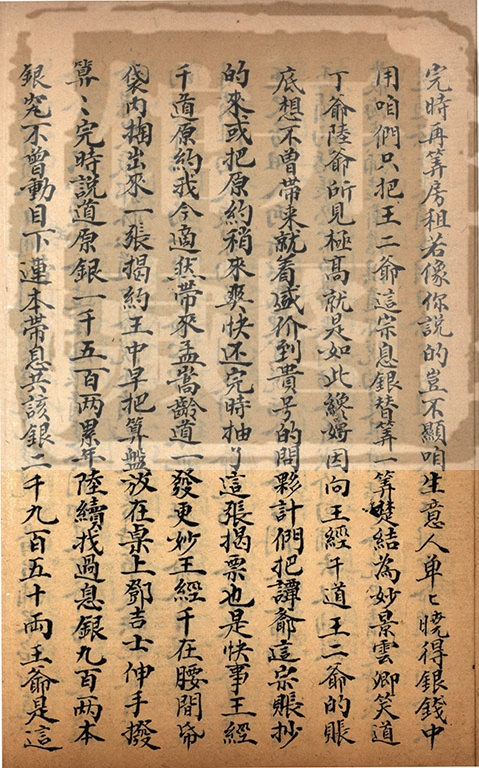 完時再筭房租若像你說的豈不顯咱生意人单〻曉得銀錢中
用咱們只把王二爺這宗息銀替筭一筭楚結為妙景雲卿笑道
丁爺陸爺所見極高就是如此纔好因向王經千道王二爺的賬
底想不曾带来就着盛价到貴号的問夥計們把譚爺這宗賬抄
的來或把原約稍來爽快还完時抽了這張揭票也是快事王經
千道原約我今適然带來孟嵩齡道一發更妙王經千在腰間吊
袋內掏出來一張揭約王中早把算盤放在桌上鄧吉士伸手撥
算〻完時説道原銀一千五百两累年陸續找過息銀九百两本
銀究不曾動目下連本带息共該銀二千九百五十两王爺是這